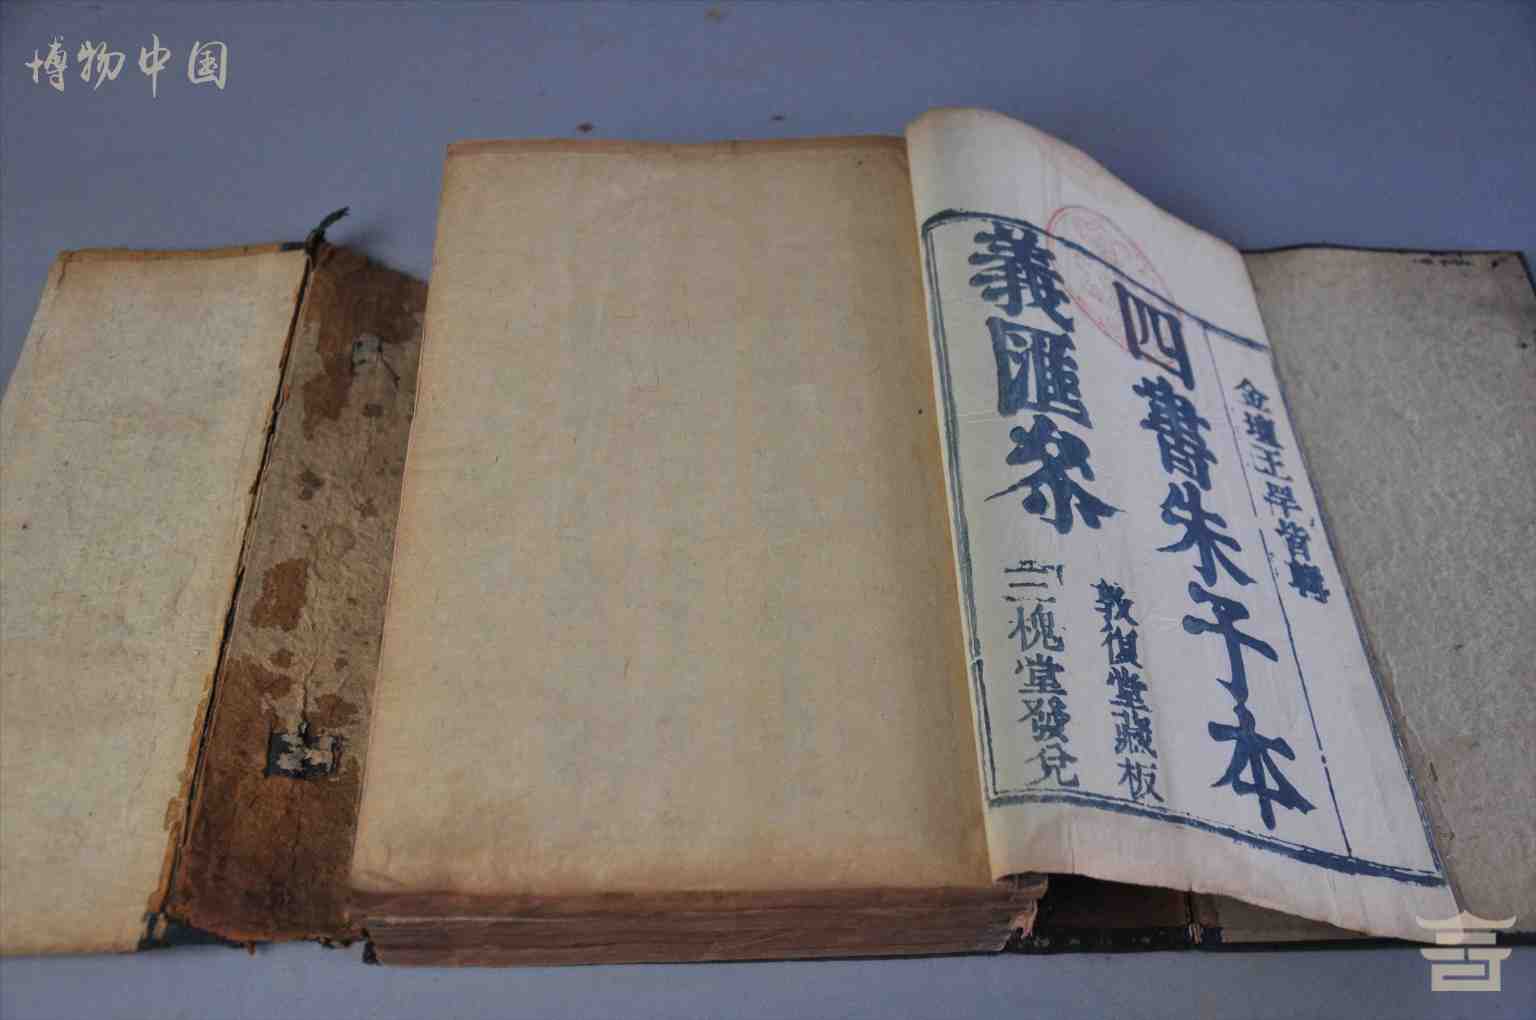 博物中国
金壇王罕皆輯
四書朱子本
義匯叅
敦復堂藏板
三槐堂發兌